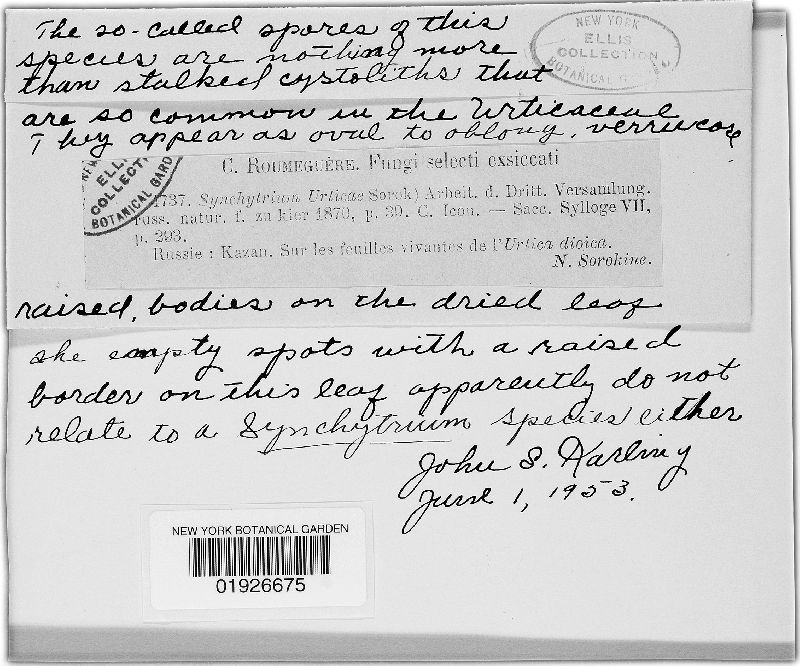 The so-called spores of this
species are nothing more
than stalked cystoliths that
NEW YORK
ELLIS
COLLECTION
BOTANICAL G
are so common in the Urticaceae
They appear as oval to oblong, verrucose
NEW
ELLIS
COLLECTI
BOTANICAL GARD
C. ROUMEGUÈRE. Fungi selecti exsiccati
1737. Synchytrium Urticae Sorok) Arbeit. d. Dritt. Versamlung.
russ. natur. f. zu kier 1870, p. 39. C. Icon. — Sacc. Sylloge VII,
p. 293.
Russie : Kazan. Sur les feuilles vivantes de l'Urtica dioica.
N. Sorokine.
raised, bodies on the dried leaf
she empty spots with a raised
border on this leaf apparently do not
relate to a Synchytrium species either
John S. Karling
June 1, 1953.
NEW YORK BOTANICAL GARDEN
01926675